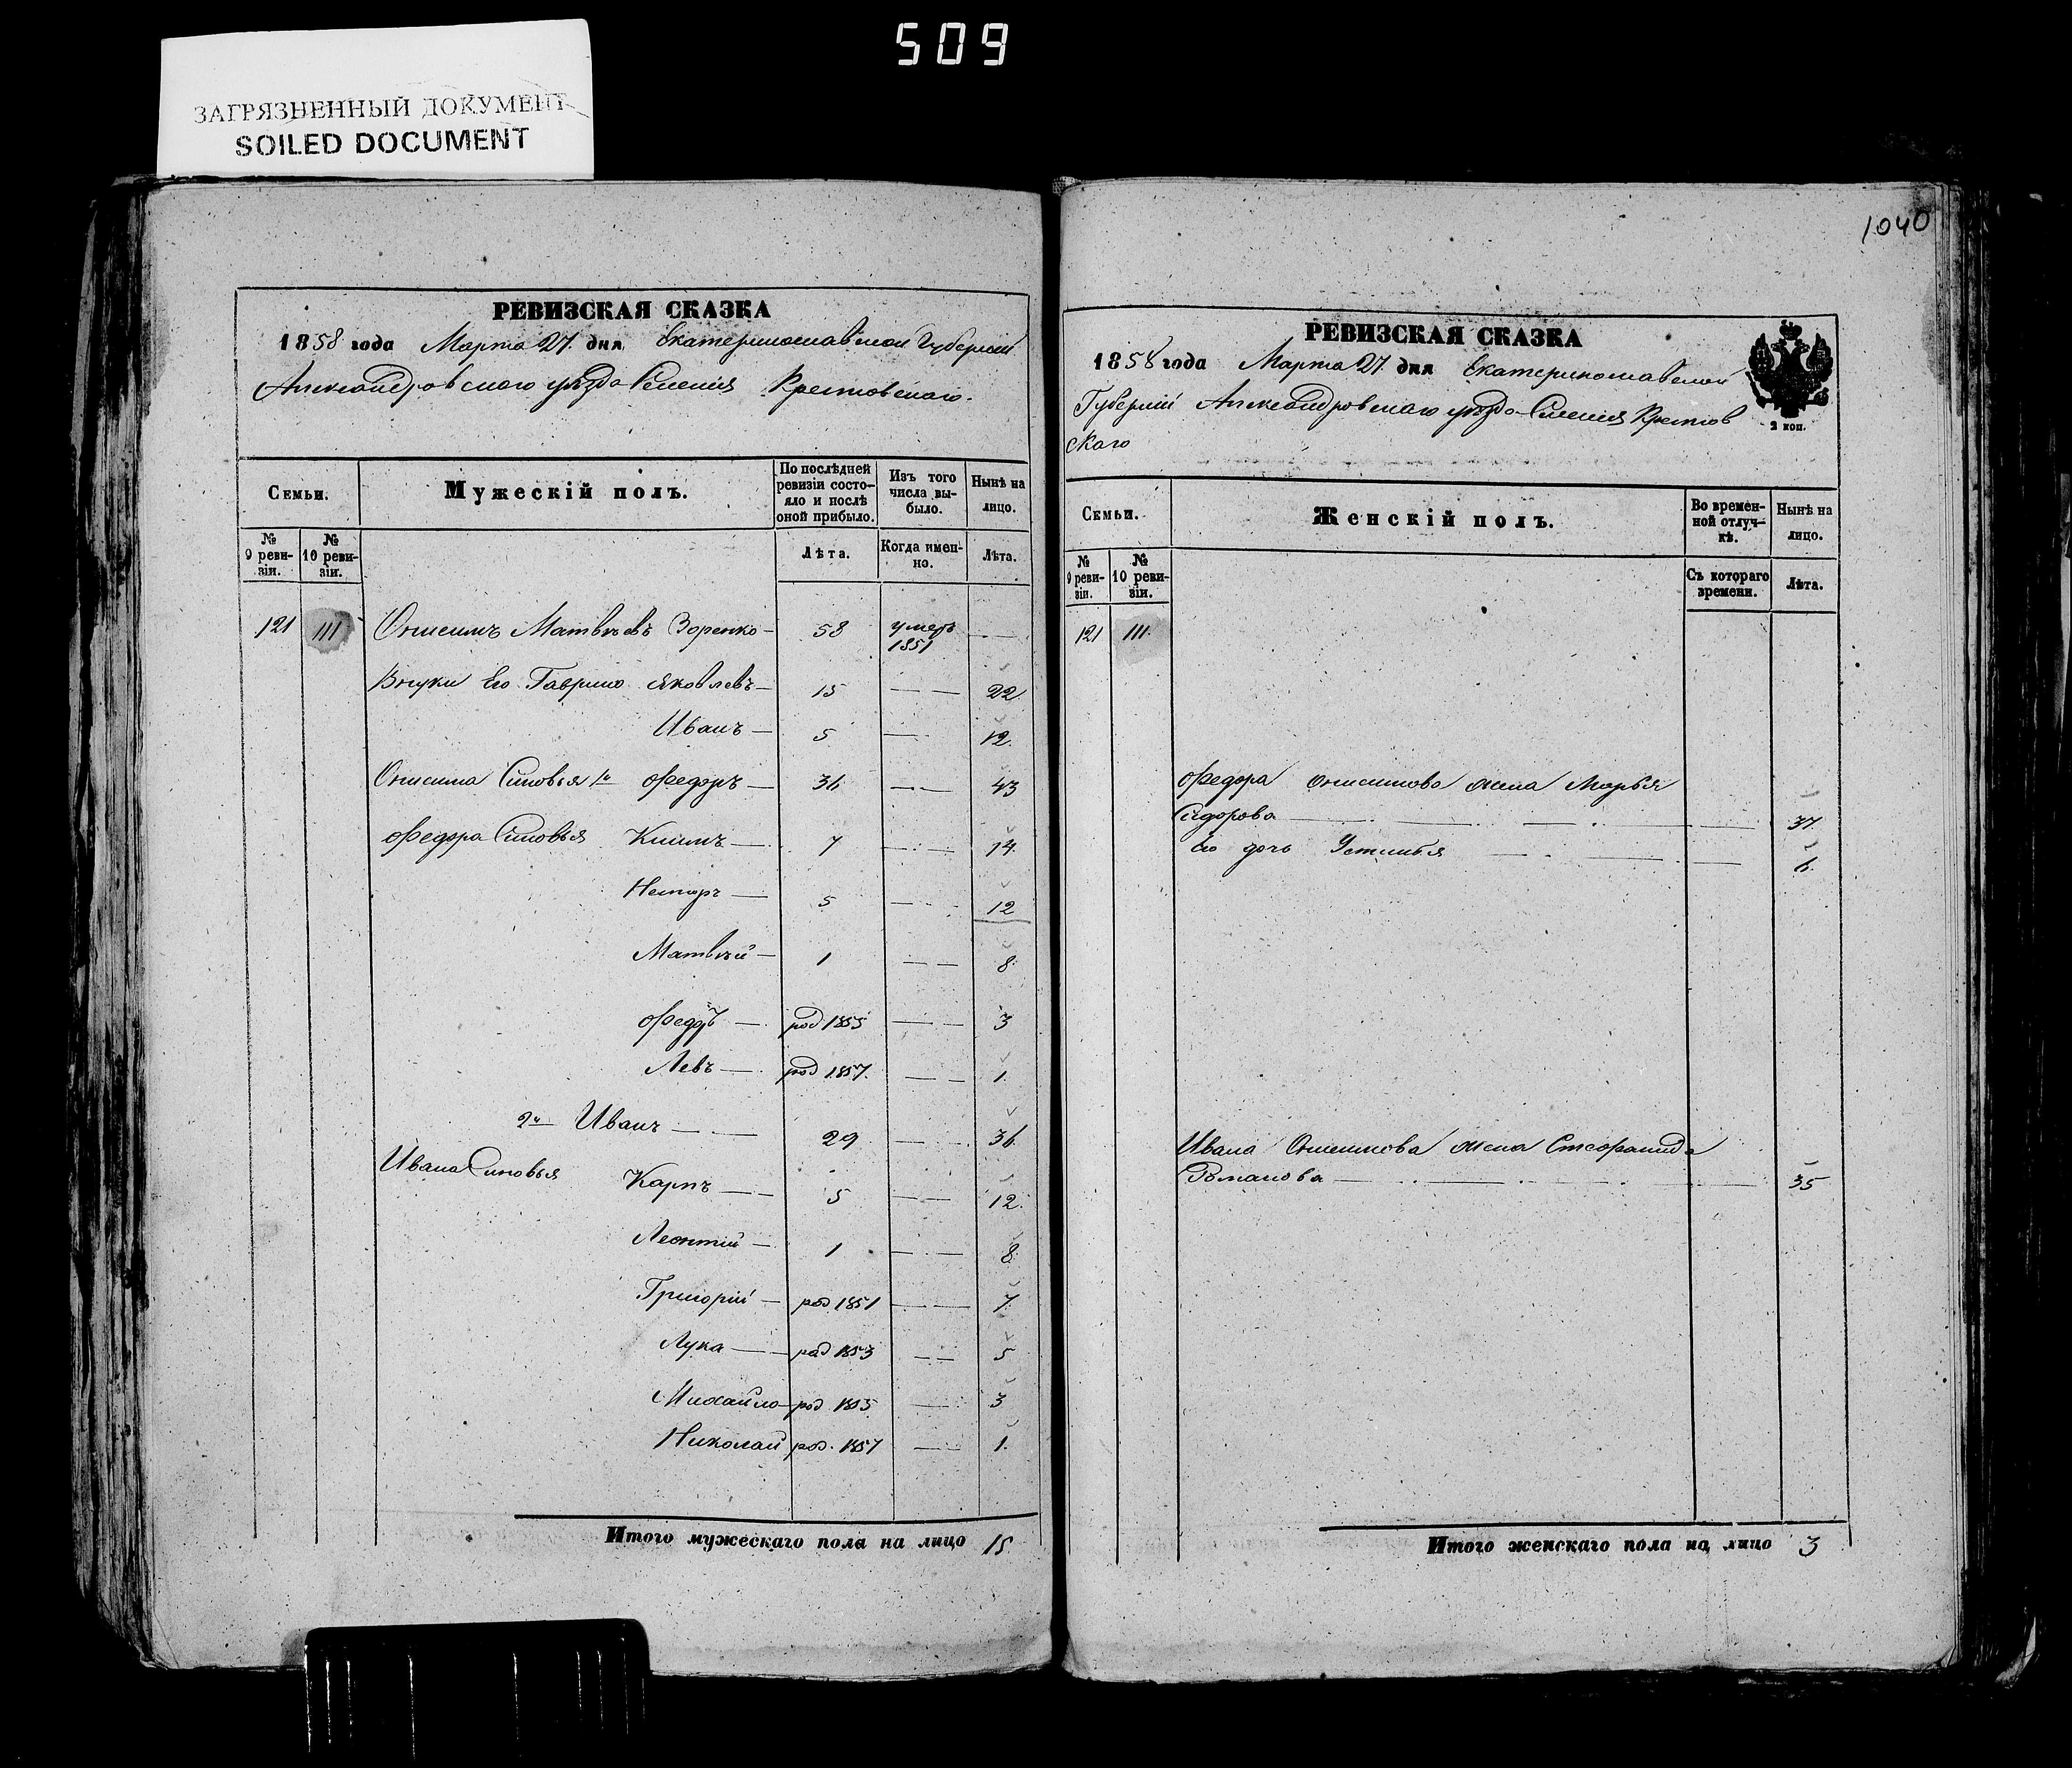 509
ЗАГРЯЗНЕННЫЙ ДОКУМЕНТ
SOILED DOCUMENT
1040
РЕВИЗСКАЯ СКАЗКА
1858 года Марта 27. дня Екатеринославской Губерніи
Александровскаго уѣзда Селенія Крестовскаго.
Семьи.
Мужескій полъ.
По послѣдней ревизіи состояло и послѣ оной прибыло.
Изъ того числа выбыло.
Нынѣ на лицо.
№ 9 ревизіи.
№ 10 ревизіи.
Лѣта.
Когда именно.
Лѣта.
121 111 Онисимъ Матвѣевъ Зоренко 58 умеръ 1851
Внуки Его Гаврило Яковлевъ 15 22.
Иванъ 5 12.
Онисима Сыновья 1й Федоръ 36 43
Федора Сыновья Климъ 7 14.
Несторъ 5 12
Матвѣй 1 8.
Федоръ род 1855 3
Левъ род 1857. 1.
2й Иванъ 29 36.
Ивана Сыновья Карпъ 5 12.
Леонтій 1 8.
Григорій род 1851 7.
Лука род 1853 5
Михайло род 1855 3
Николай род. 1857 1.
Итого мужескаго пола на лицо 15
РЕВИЗСКАЯ СКАЗКА
1858 года Марта 27. дня Екатеринославской
Губерніи Александровскаго уѣзда Селенія Крестов
скаго
2 коп.
Семьи.
Женскій полъ.
Во временной отлучкѣ.
Нынѣ на лицо.
№ 9 ревизіи.
№ 10 ревизіи.
Съ котораго времени.
Лѣта.
121 111.
Федора Онисимова жена Марья
Сидорова 37.
Его дочь Устинья 6.
Ивана Онисимова жена Стефанида
Романова 35
Итого женскаго пола на лицо 3